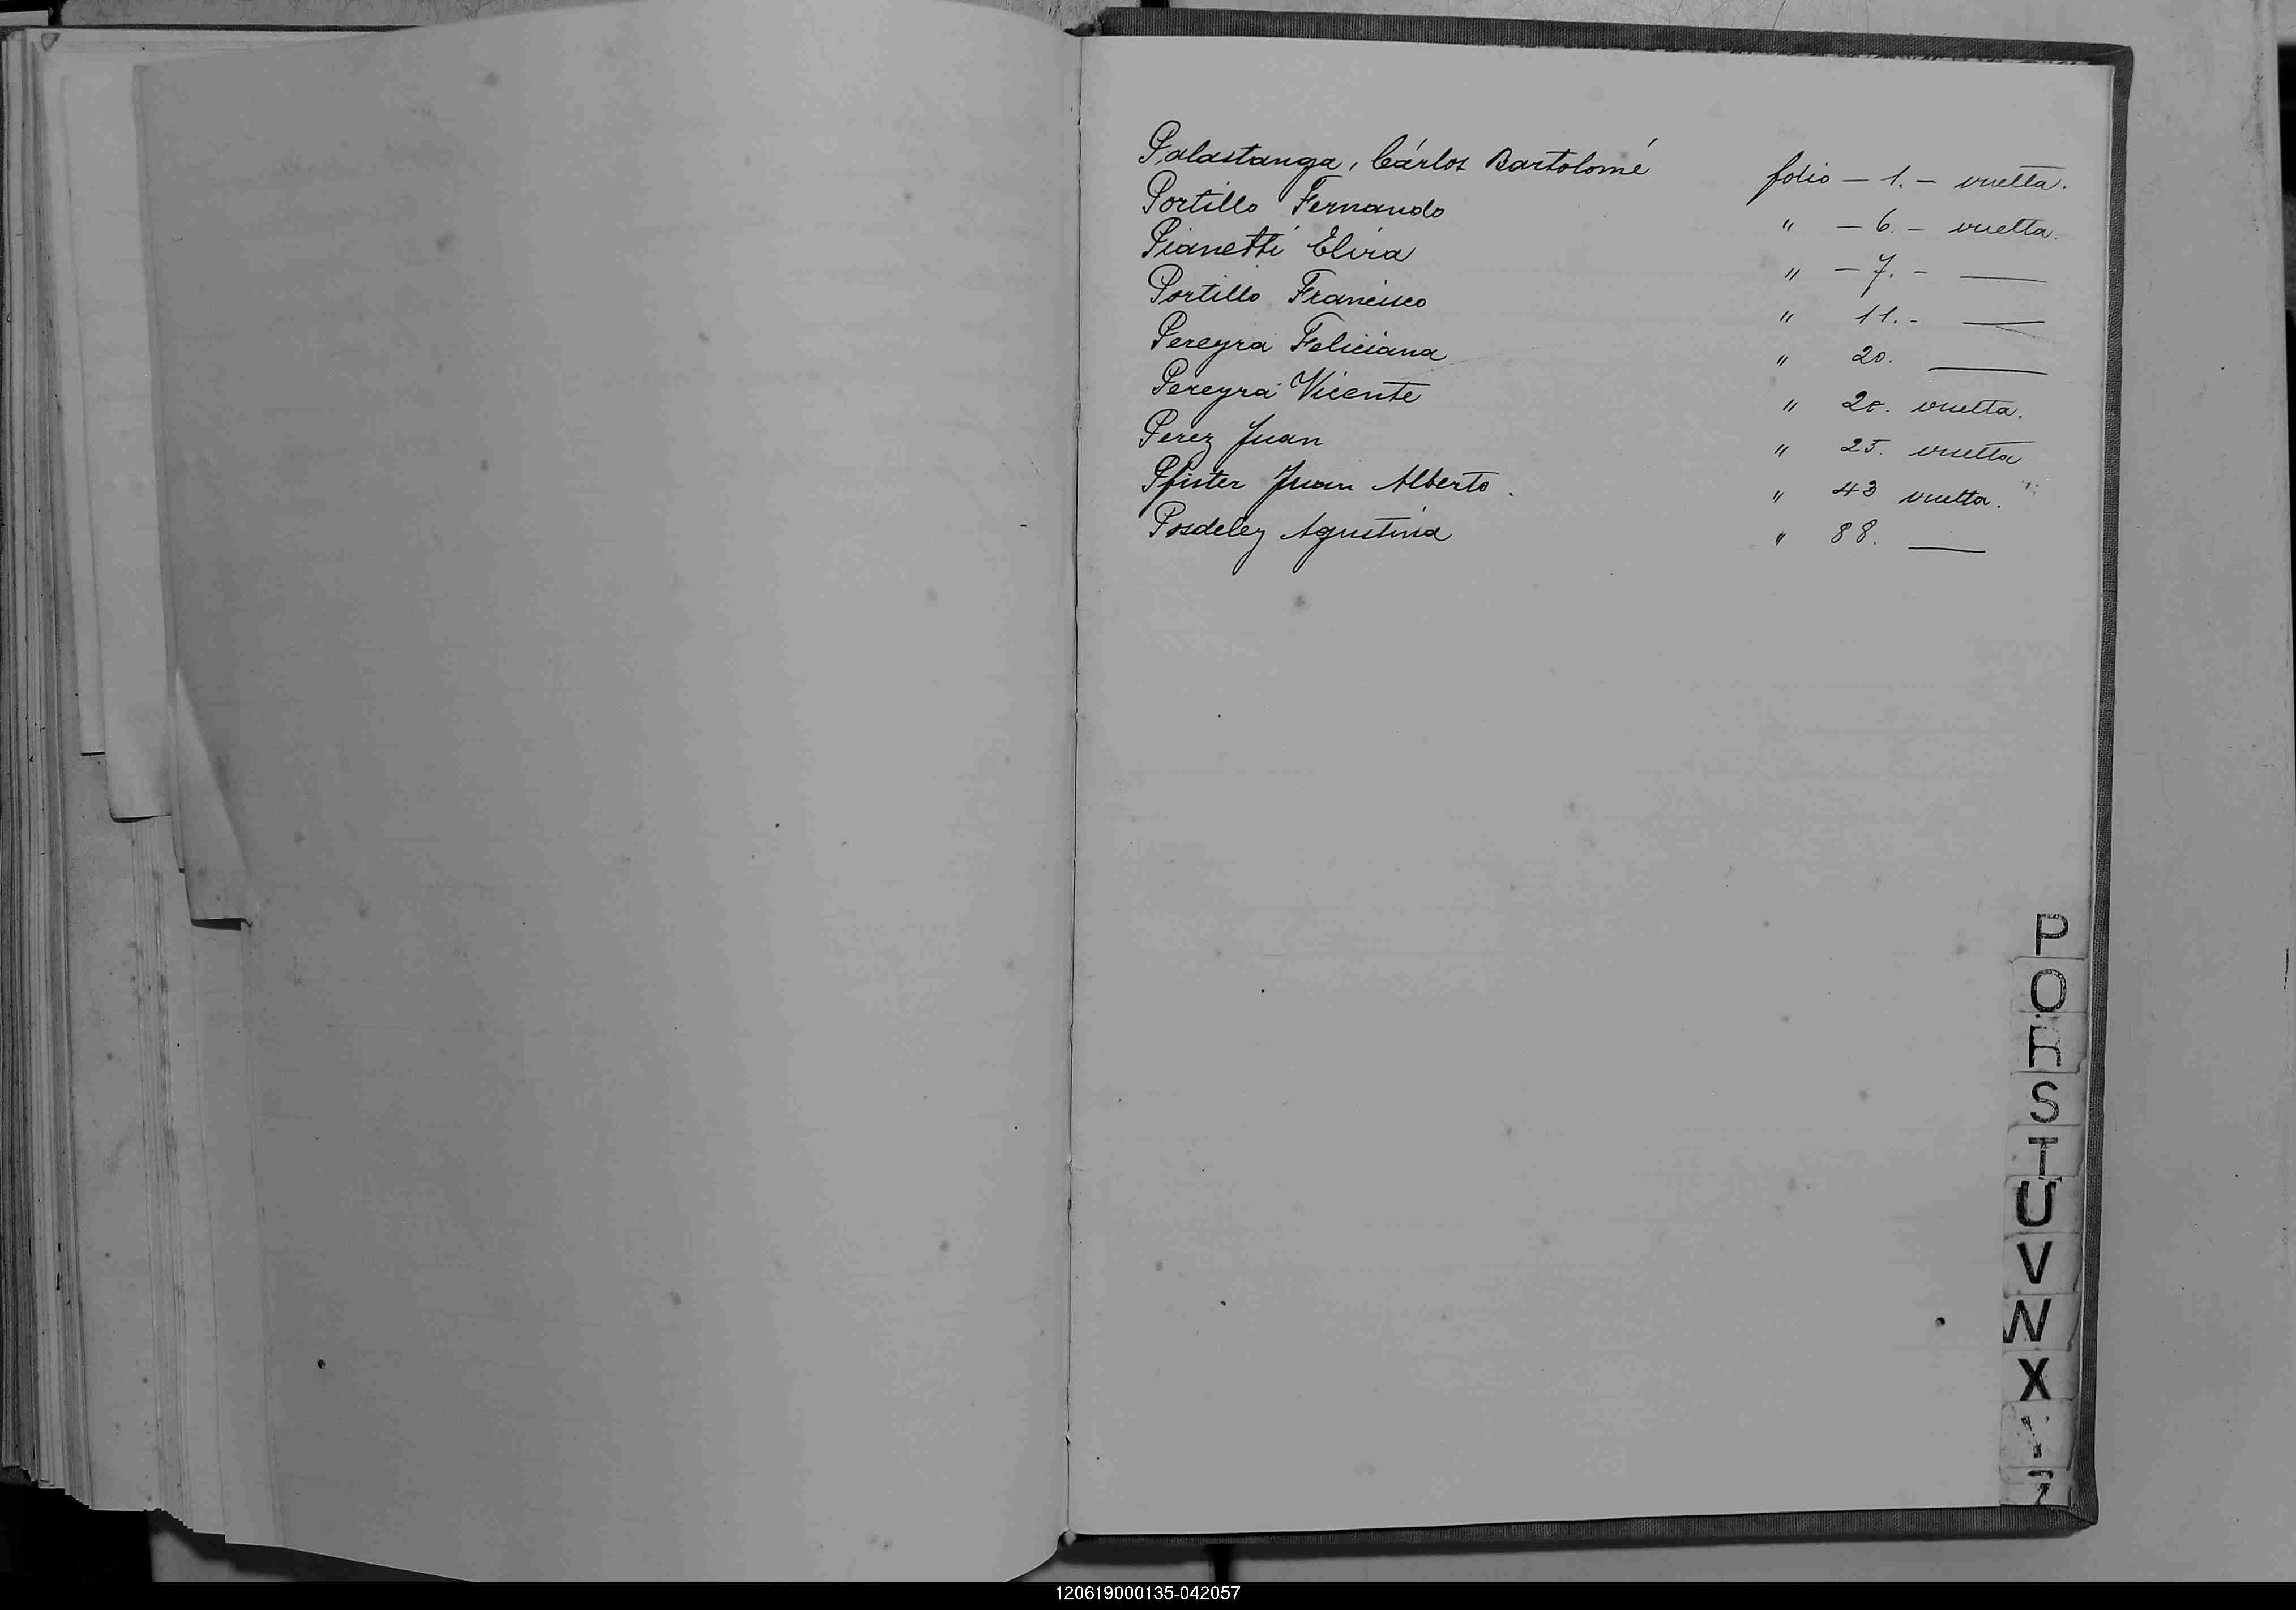 Palastanga, Cárlos Bartolomé folio — 1. — vuelta.
Portillo Fernando " — 6. — vuelta.
Pianetti Elvira " — 7. - ——
Portillo Francisco " 11. - ——
Pereyra Feliciana " 20. ——
Pereyra Vicente " 20. vuelta.
Perez Juan " 25. vuelta
Pfister Juan Alberto. " 43 vuelta.
Posdeley Agustina " 88. ——
P
Q
R
S
T
U
V
W
X
120619000135-042057